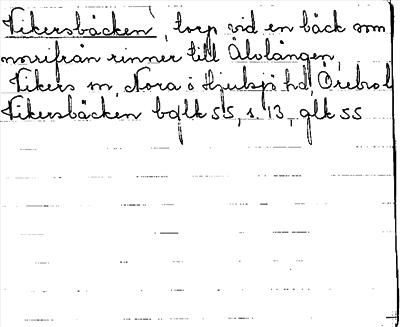 Vikersbäcken, torp vid en bäck som
norifrån rinner till Älvlången,
Vikers sn, Nora o Hjulsjö hd, Örebro l
Vikersbäcken bglk 55, s. 13, glk 55